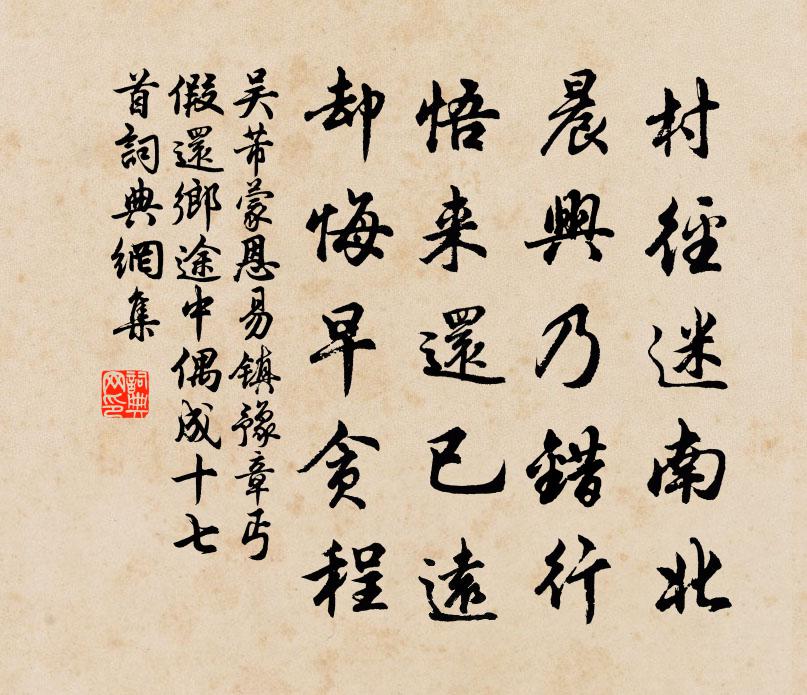 村徑迷南北
晨興乃錯行
悟来還已遠
却悔早貪程
吴芾蒙恩易鎮豫章丐
假還鄉途中偶成十七
首詞典網集
詞典網印